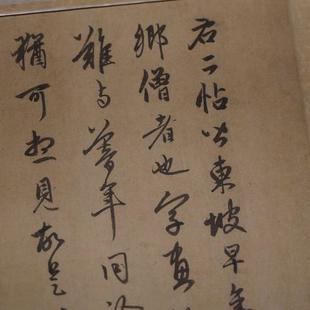 右二帖皆東坡早年
鄉僧者也字畫
雖與暮年同
猶可想見故是